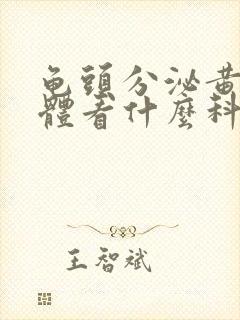 龟頭分泌黄
體看什麼科
王智斌